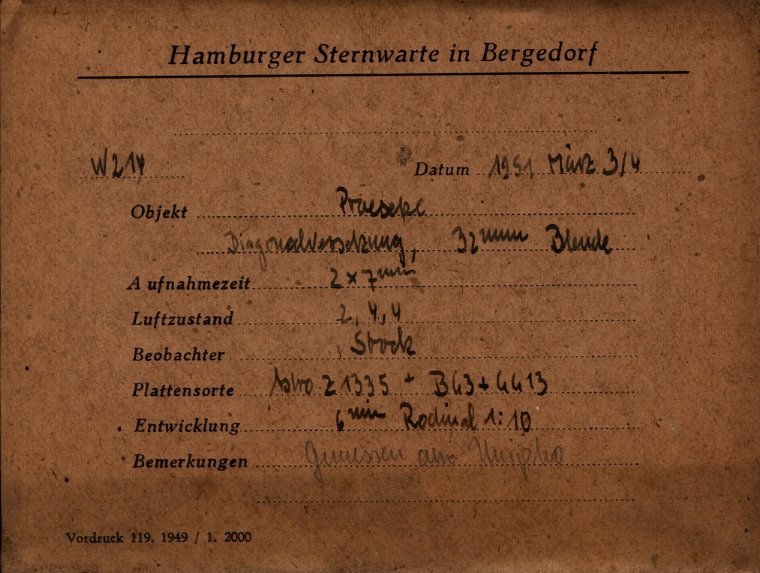 Hamburger Sternwarte in Bergedorf
W214 Datum 1951 März 3/4
Objekt Praesepe
Diagonalversetzung, 32 mm Blende
Aufnahmezeit 2 x 7 min
Luftzustand 2, 4, 4
Beobachter Stock
Plattensorte Astro Z 1335 + BG3+GG13
Entwicklung 6 min Rodinal 1:10
Bemerkungen Gemessen am
Vordruck 119. 1949 / 1. 2000